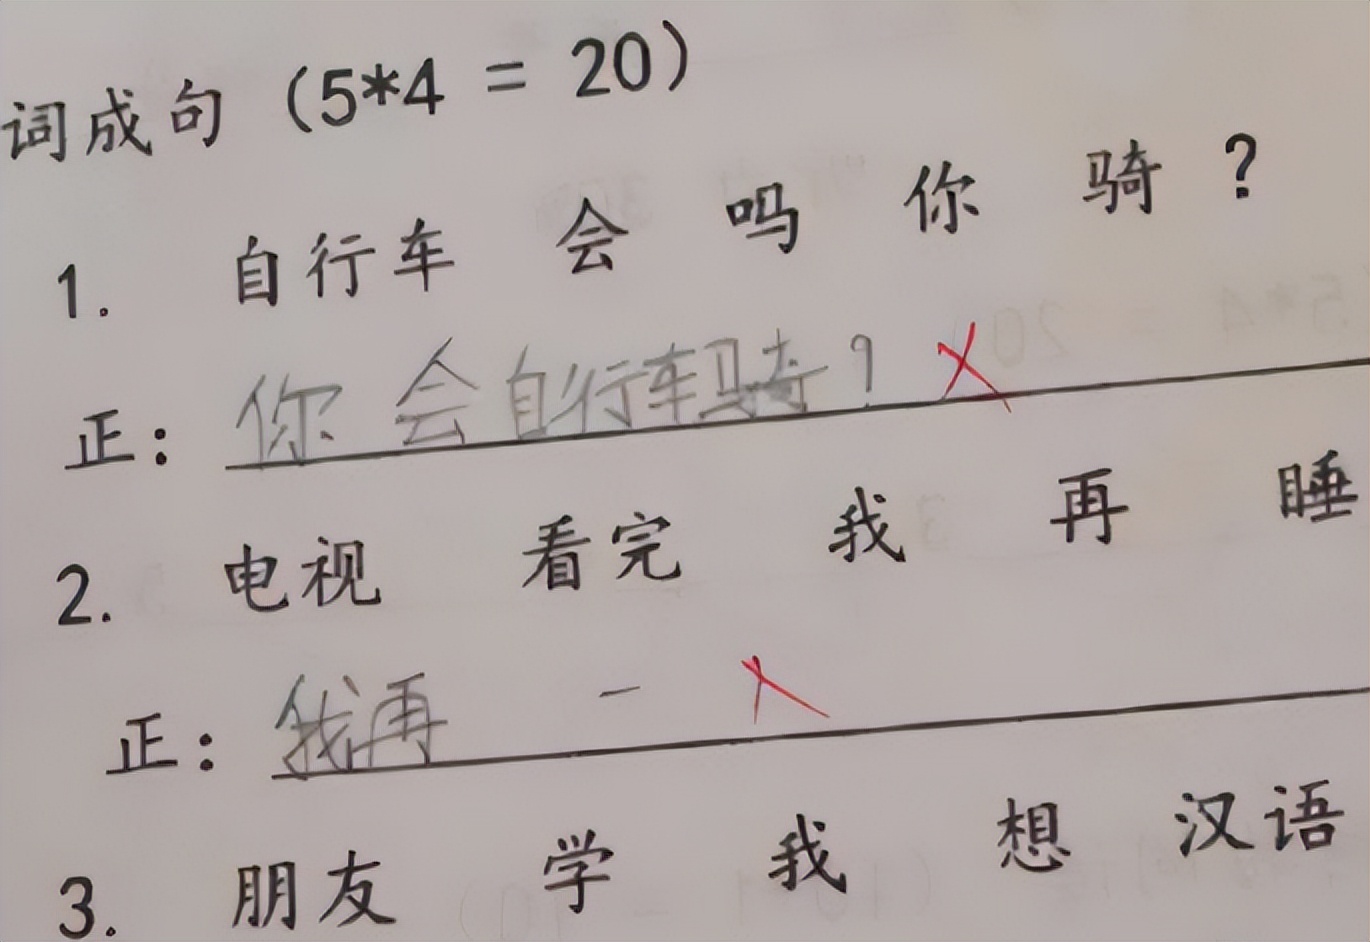 词成句 (5*4 = 20)
1. 自行车 会 吗 你 骑 ?
正: 你 会 自行车骑?
2. 电视 看完 我 再 睡
正: 我再 一
3. 朋友 学 我 想 汉语